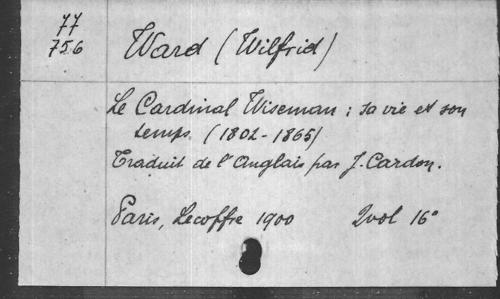 77
756
Ward (Wilfrid)
Le Cardinal Wiseman ; sa vie et son
temps. (1802-1865)
Traduit de l'Anglais par J. Cardon.
Paris, Lecoffre 1900 2vol 16°